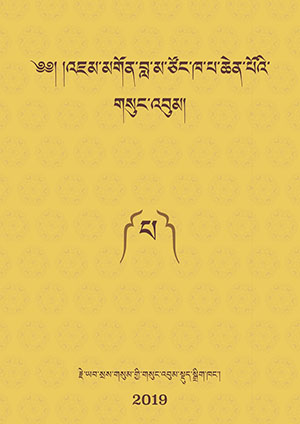 ༄༅། །འཇམ་མགོན་བླ་མ་ཙོང་ཁ་པ་ཆེན་པོའི་
གསུང་འབུམ།
ང།
རྗེ་ཡབ་སྲས་གསུམ་གྱི་གསུང་འབུམ་སྡུད་སྒྲིག་ཁང་།
2019